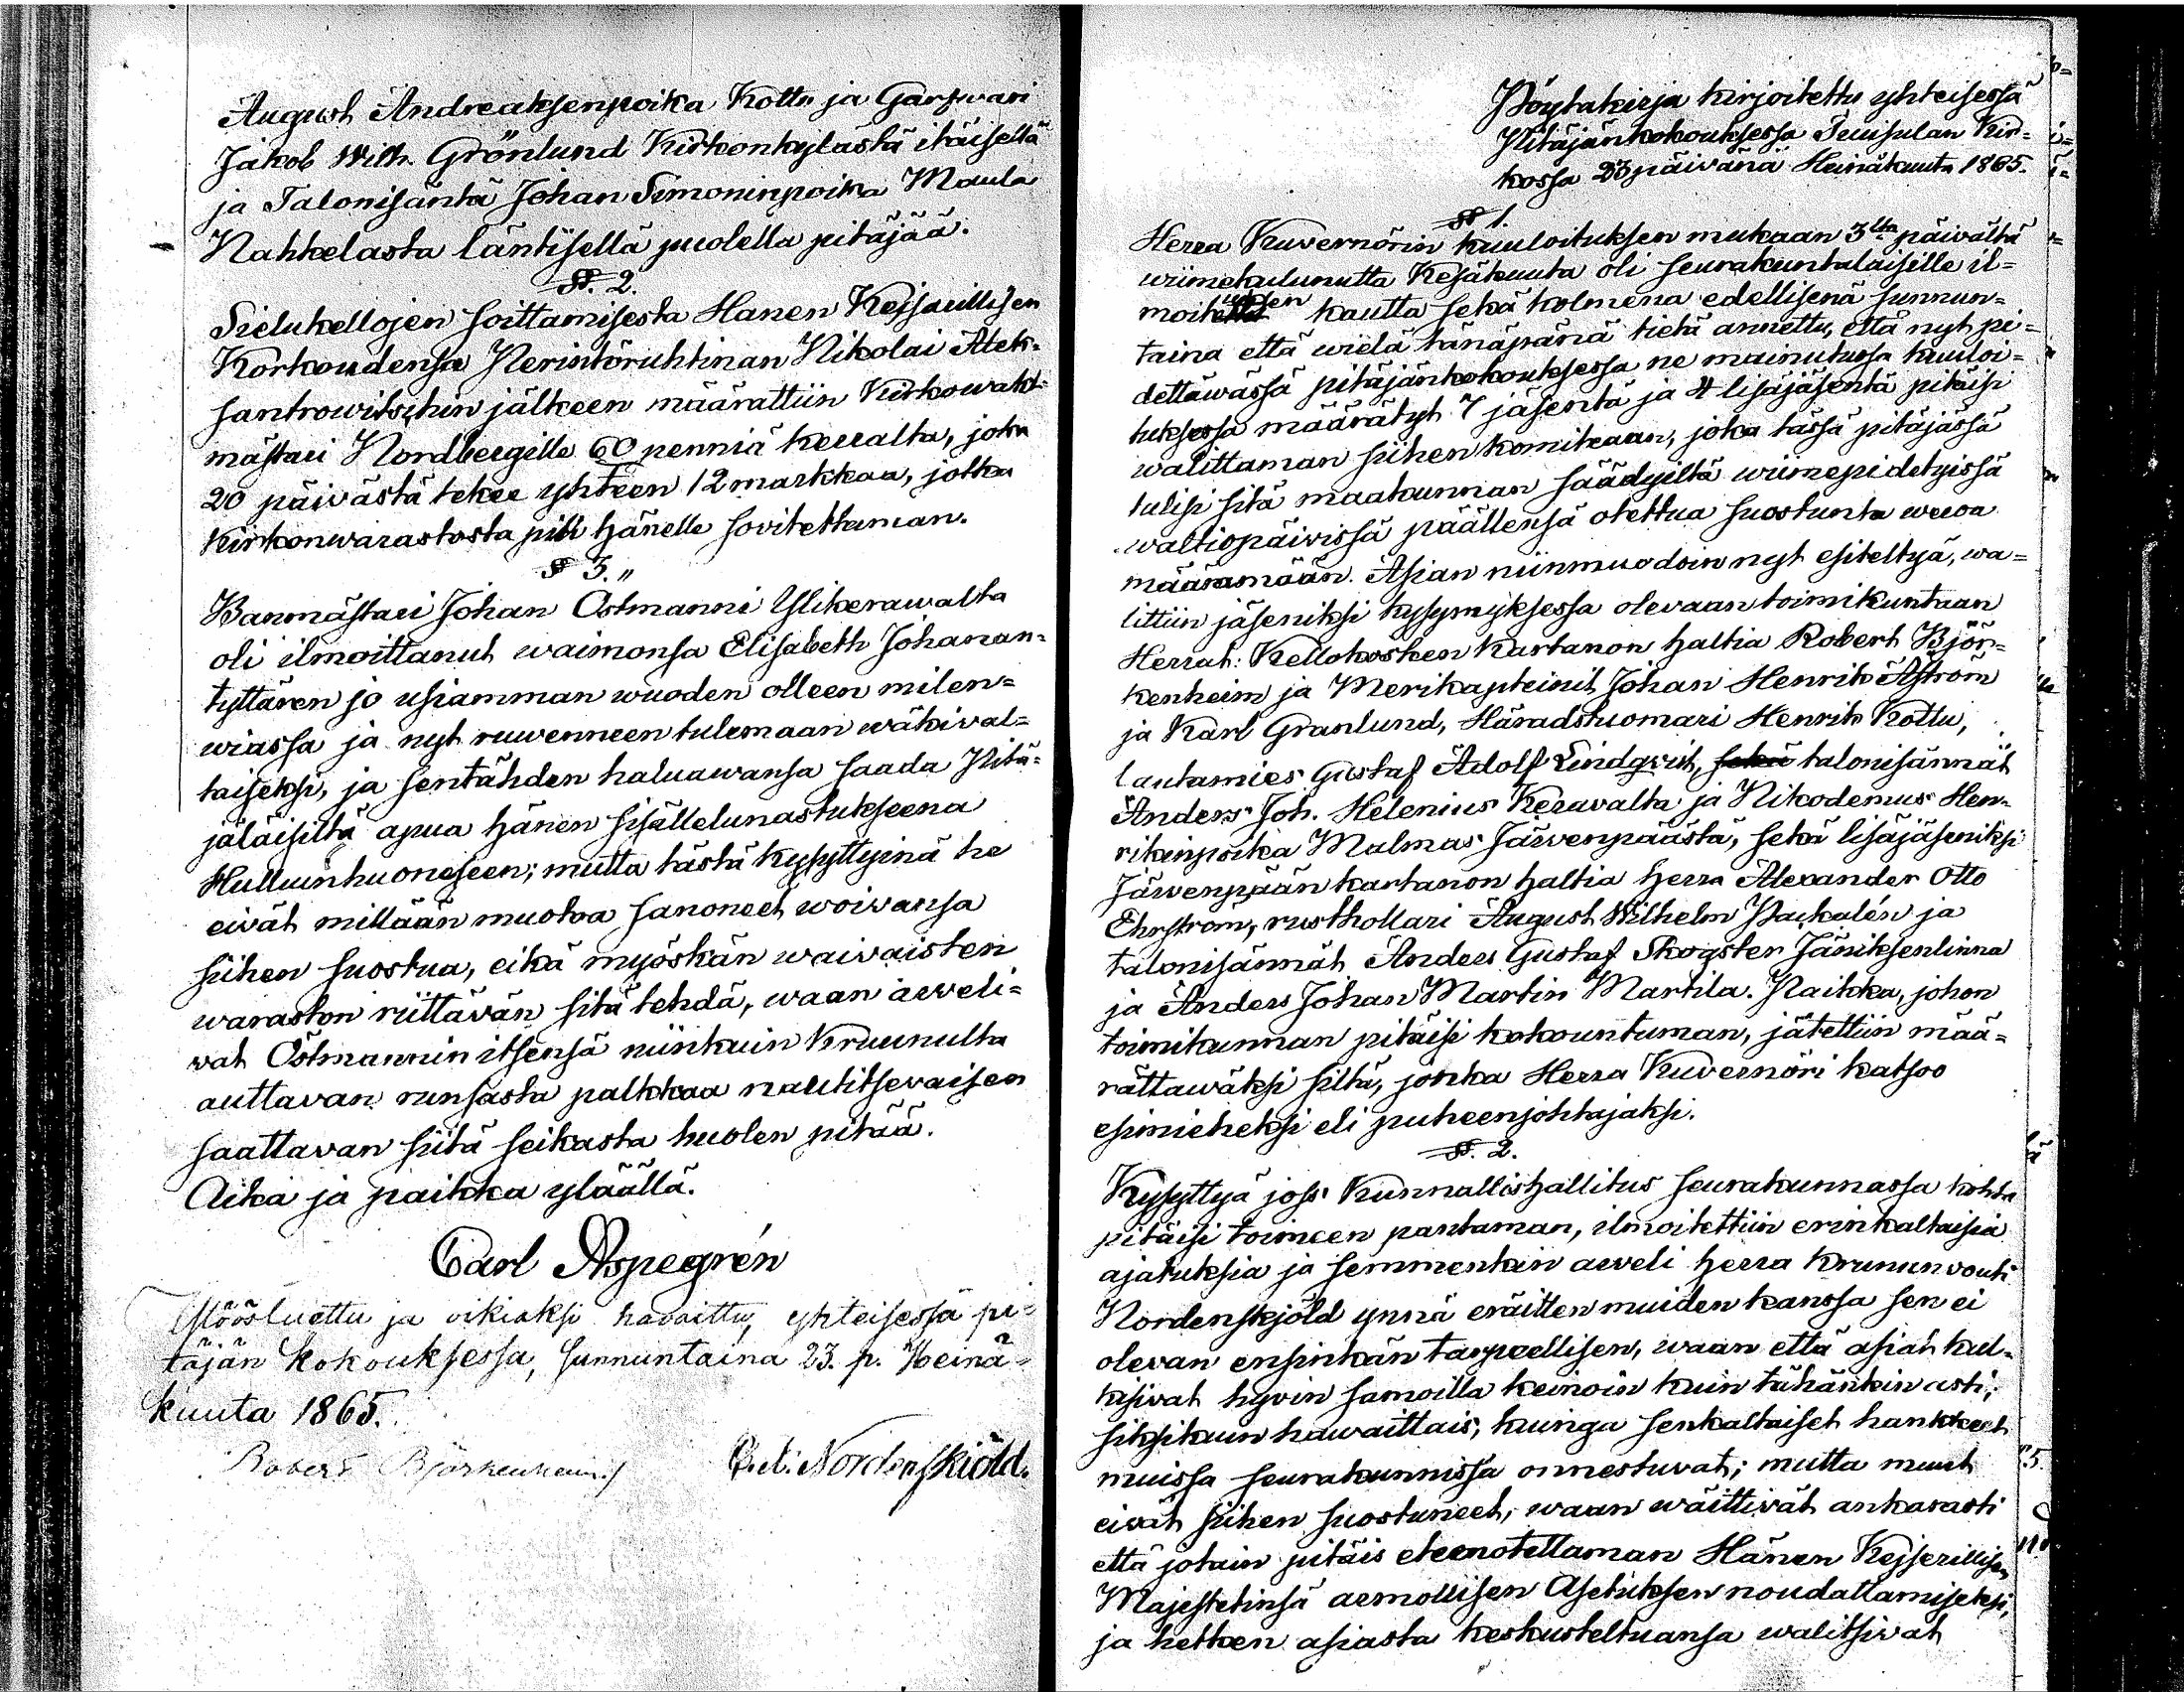 August Andreaksenpoika Kottu ja Garfwari
Jakob Wilh. Grönlund Kirkonkylästä itäisellä
ja Talonisäntä Johan Simoninpoika Maula
Nahkelasta läntisellä puolella pitäjää.
§. 2.
Sielukellojen soittamisesta Hänen Keisarillisen
Korkeudensa Perintöruhtinan Nikolai Alek-
santrowitschin jälkeen määrattiin Kirkowaht-
mästari Nordbergille 60 penniä kerralta, joka
20 päivästä tekee yhteen 12 markkaa, jotka
Kirkonwarastosta piti hänelle sovitettaman.
§ 3."
Banmästari Johan Östmanni Ylikerawalta
oli ilmoittanut waimonsa Elisabeth Johanan-
tyttären jo usiamman wuoden olleen milen-
wiassa ja nyt ruwenneen tulemaan wäkival-
taiseksi, ja sentähden haluawansa saada Pitä-
jäläisiltä apua hänen sisällelunastukseena
Hulluinhuoneseen; mutta tästä kysyttyinä he
eivät millään muotoa sanoneet woivansa
siihen suostua, eikä myöskän waivaisten
waraston riittävän sitä tehdä, waan arweli-
vat Östmannin itsensä niinkuin Kruunulta
auttavan runsasta palkkaa nautitsevaisen
saattavan siitä seikasta huolen pitää.
Aika ja paikka ylläällä.
Carl Aspegrén
Ylösluettu ja oikiaksi havaittu, yhteisessä pi-
täjän kokouksessa, sunnuntaina 23. p. Heinä-
kuuta 1865.
Robert Björkenheim./ Nordenskiöld.
Pöytäkirja kirjoitettu yhteisessä
Pitäjänkokouksessa Tuusulan Kir-
kossa 23 päivänä Heinäkuuta 1865.
§ 1.
Herra Kuvernörin kuuloituksen mukaan 3lta päivältä
wiimekulunutta Kesäkuuta oli seurakuntalaisille il-
moituksen kautta sekä kolmena edellisenä sunnun-
taina että wielä tänäpänä tietä annettu, että nyt pi-
dettäwässä pitäjänkokouksessa ne mainitussa kuuloi-
tuksessa määrätyt 7 jäsentä ja 4 lisäjäsentä pitäisi
walittaman siihen komiteaan, joka tässä pitäjässä
tulisi sitä maakunnan säädyiltä wiimepidetyissä
waltiopäivissä päällensä otettua suostunta weroa
määrämään. Asian niinmuodoin nyt esiteltyä, wa-
littiin jäseniksi kysymyksessä olevaan toimikuntaan
Herrat: Kellokosken Kartanon haltia Robert Björ-
kenheim ja Merikapteinit Johan Henrik Åström
ja Karl Granlund, Häradstuomari Henrik Kottu,
lautamies Gustaf Adolf Lindqvist, sekä talonisännät
Anders Joh. Helenius Keravalta ja Nikodemus Hen-
rikinpoika Malmas Järvenpäästä, sekä lisäjäseniksi
Järvenpään kartanon haltia herra Alexander Otto
Ehrström, rusthollari August Wilhelm Paukulén ja
talonisännät Anders Gustaf Skogster Jäniksenlinna
ja Anders Johan Martin Martila. Paikka, johon
toimikunnan pitäisi kokountuman, jätettiin mää-
rättawäksi siltä, jonka Herra Kuvernöri katsoo
esimieheksi eli puheenjohtajaksi.
§. 2.
Kysyttyä joss Kunnallishallitus seurakunnassa kohta
pitäisi toimeen pantaman, ilmoitettiin erinkaltaisia
ajatuksia ja semmenkin arveli herra Krununvouti
Nordenskjöld ynnä eräitten muiden kanssa sen ei
olevan ensinkän tarpeellisen, waan että asiat kul-
kisivat hyvin samoilla keinoin kuin tähänkin asti,
siksikuin hawaittais, kuinga senkaltaiset hankkeet
muissa seurakunnissa onnestuvat; mutta muut
eivät siihen suostuneet, waan wäittivät ankarasti
että jotain pitäis eteenotettaman Hänen Kejserillisen
Majestetinsä armollisen Asetuksen noudattamiseksi,
ja hetken asiasta keskusteltuansa walitsivat